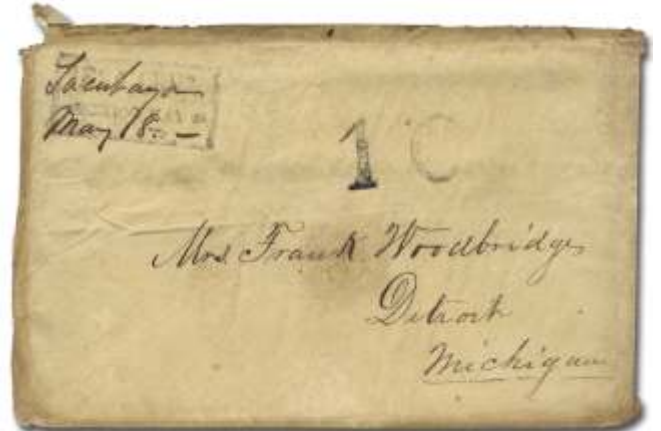 Tacubaya
May 18. —
10
Mrs Frank Woodbridge,
Detroit
Michigan